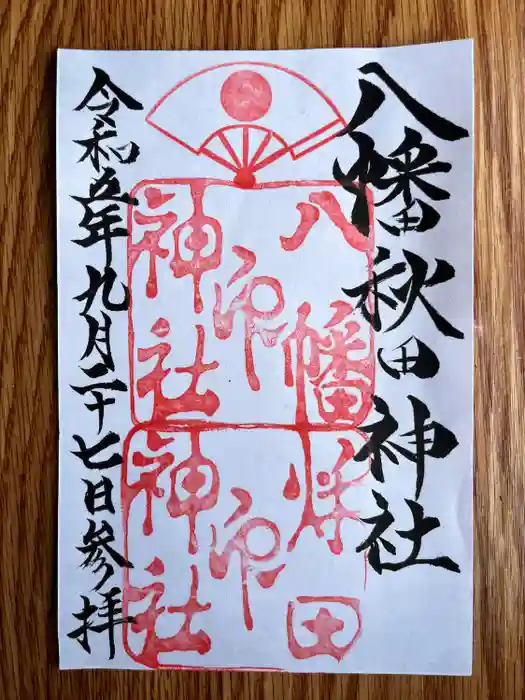 八幡秋田神社
八幡
神社
印
秋田
神社
印
令和五年九月二十七日參拝